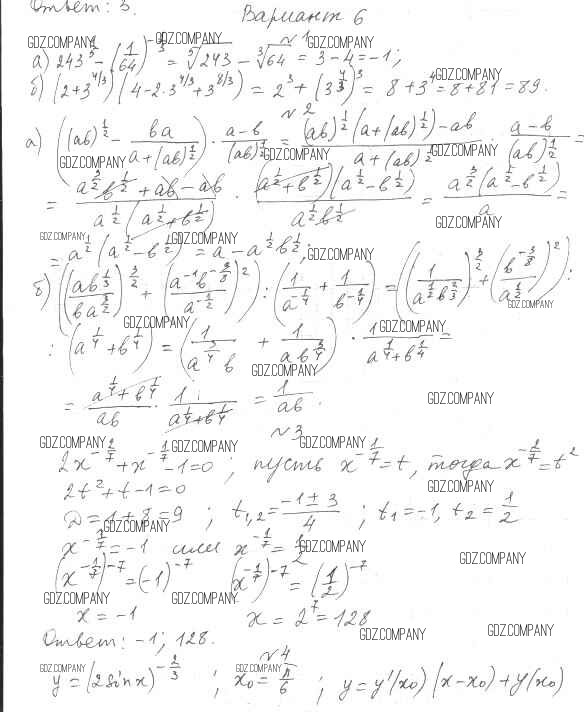 Ответ: 3.
Вариант 6
№1
а) 243^{1/5} - (1/64)^{-1/3} = ⁵√243 - ³√64 = 3 - 4 = -1;
б) (2+3^{4/3})(4-2·3^{4/3}+3^{8/3}) = 2³ + (3^{4/3})³ = 8+3⁴ = 8+81 = 89.
№2
а) ((ab)^{1/2} - ba/(a+(ab)^{1/2})) · (a-b)/(ab)^{1/2} = ((ab)^{1/2}(a+(ab)^{1/2})-ab)/(a+(ab)^{1/2}) · (a-b)/(ab)^{1/2} =
= (a^{3/2}b^{1/2}+ab-ab)/(a^{1/2}(a^{1/2}+b^{1/2})) · (a^{1/2}+b^{1/2})(a^{1/2}-b^{1/2})/(a^{1/2}b^{1/2}) = a^{3/2}(a^{1/2}-b^{1/2})/a =
= a^{1/2}(a^{1/2}-b^{1/2}) = a-a^{1/2}b^{1/2};
б) ((ab^{1/3}/(ba^{3/2}))^{3/2} + (a^{-1}b^{-3/8}/a^{-1/2})²) : (1/a^{-1/4} + 1/b^{-1/4}) = ((1/(a^{1/2}b^{2/3}))^{3/2} + (b^{-3/8}/a^{1/2})²) :
: (a^{1/4}+b^{1/4}) = (1/(a^{3/4}b) + 1/(ab^{3/4})) · 1/(a^{1/4}+b^{1/4}) =
= (a^{1/4}+b^{1/4})/ab · 1/(a^{1/4}+b^{1/4}) = 1/ab.
№3
2x^{-2/7}+x^{-1/7}-1=0 ; пусть x^{-1/7}=t, тогда x^{-2/7}=t²
2t²+t-1=0
D=1+8=9 ; t_{1,2}=(-1±3)/4 ; t₁=-1, t₂=1/2
x^{-1/7}=-1 или x^{-1/7}=1/2
(x^{-1/7})^{-7}=(-1)^{-7} (x^{-1/7})^{-7}=(1/2)^{-7}
x=-1 x=2⁷=128
Ответ: -1; 128.
№4
y=(2sinx)^{-2/3} ; x₀=π/6 ; y=y'(x₀)(x-x₀)+y(x₀)
GDZ.COMPANY